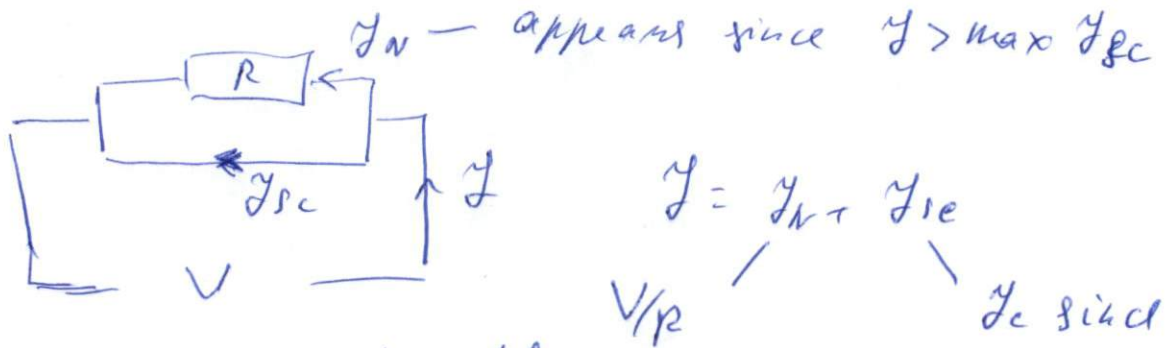 J_N — appears since J > max J_sc
R
J_sc
J
J = J_N + J_sc
V
V/R
J_c sin α